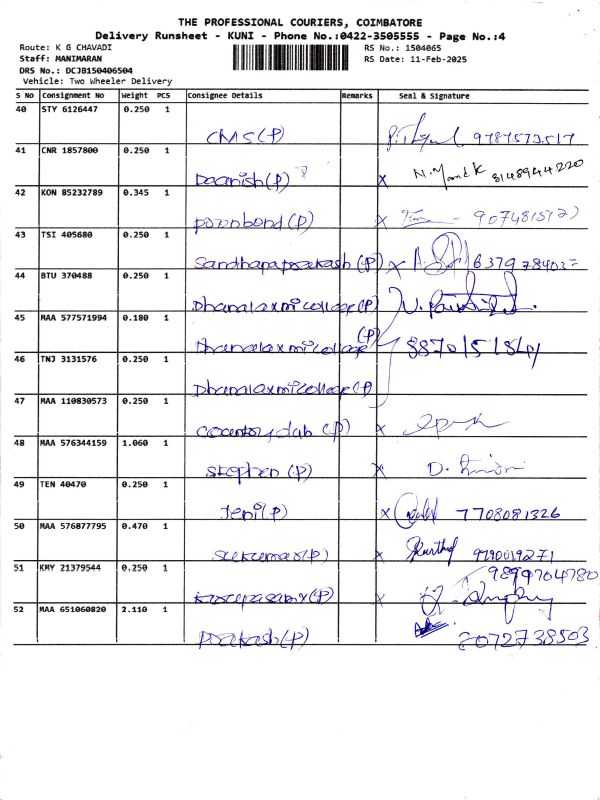 THE PROFESSIONAL COURIERS, COIMBATORE
Delivery Runsheet - KUNI - Phone No.:0422-3505555 - Page No.:4
Route: K G CHAVADI RS No.: 1504065
Staff: MANIMARAN RS Date: 11-Feb-2025
DRS No.: DCJB150406504
Vehicle: Two Wheeler Delivery
S No Consignment No Weight PCS Consignee Details Remarks Seal & Signature
40 STY 6126447 0.250 1
CMS (P) 9787573517
41 CNR 1857800 0.250 1
Daanish (P) x 8148944220
42 KON 85232789 0.345 1
ponnbond (P) x
43 TSI 405680 0.250 1
Sandhanaprakash (P) x
44 BTU 370488 0.250 1
Dhanalaxmi college (P)
45 MAA 577571994 0.180 1
Dhanalaxmi college (P)
46 TNJ 3131576 0.250 1
Dhanalaxmi college (P)
47 MAA 110830573 0.250 1
(P)
48 MAA 576344159 1.060 1
Stephen (P) x
49 TEN 40470 0.250 1
Jeni (P) x 7708081326
50 MAA 576877795 0.470 1
Sukumar (P) x Karthik 9790019271
51 KMY 21379544 0.250 1
9899704780
(P) x
52 MAA 651060820 2.110 1
Prakash (P)